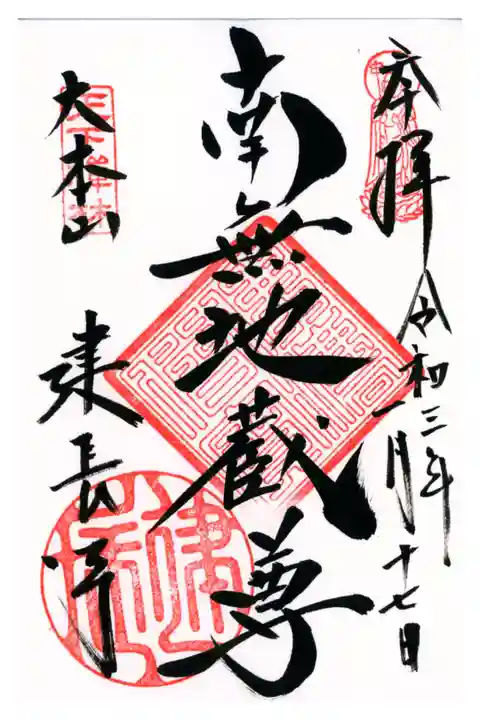 奉拝
令和三年
一月十七日
南無地蔵尊
大本山
建長寺
天下禅林